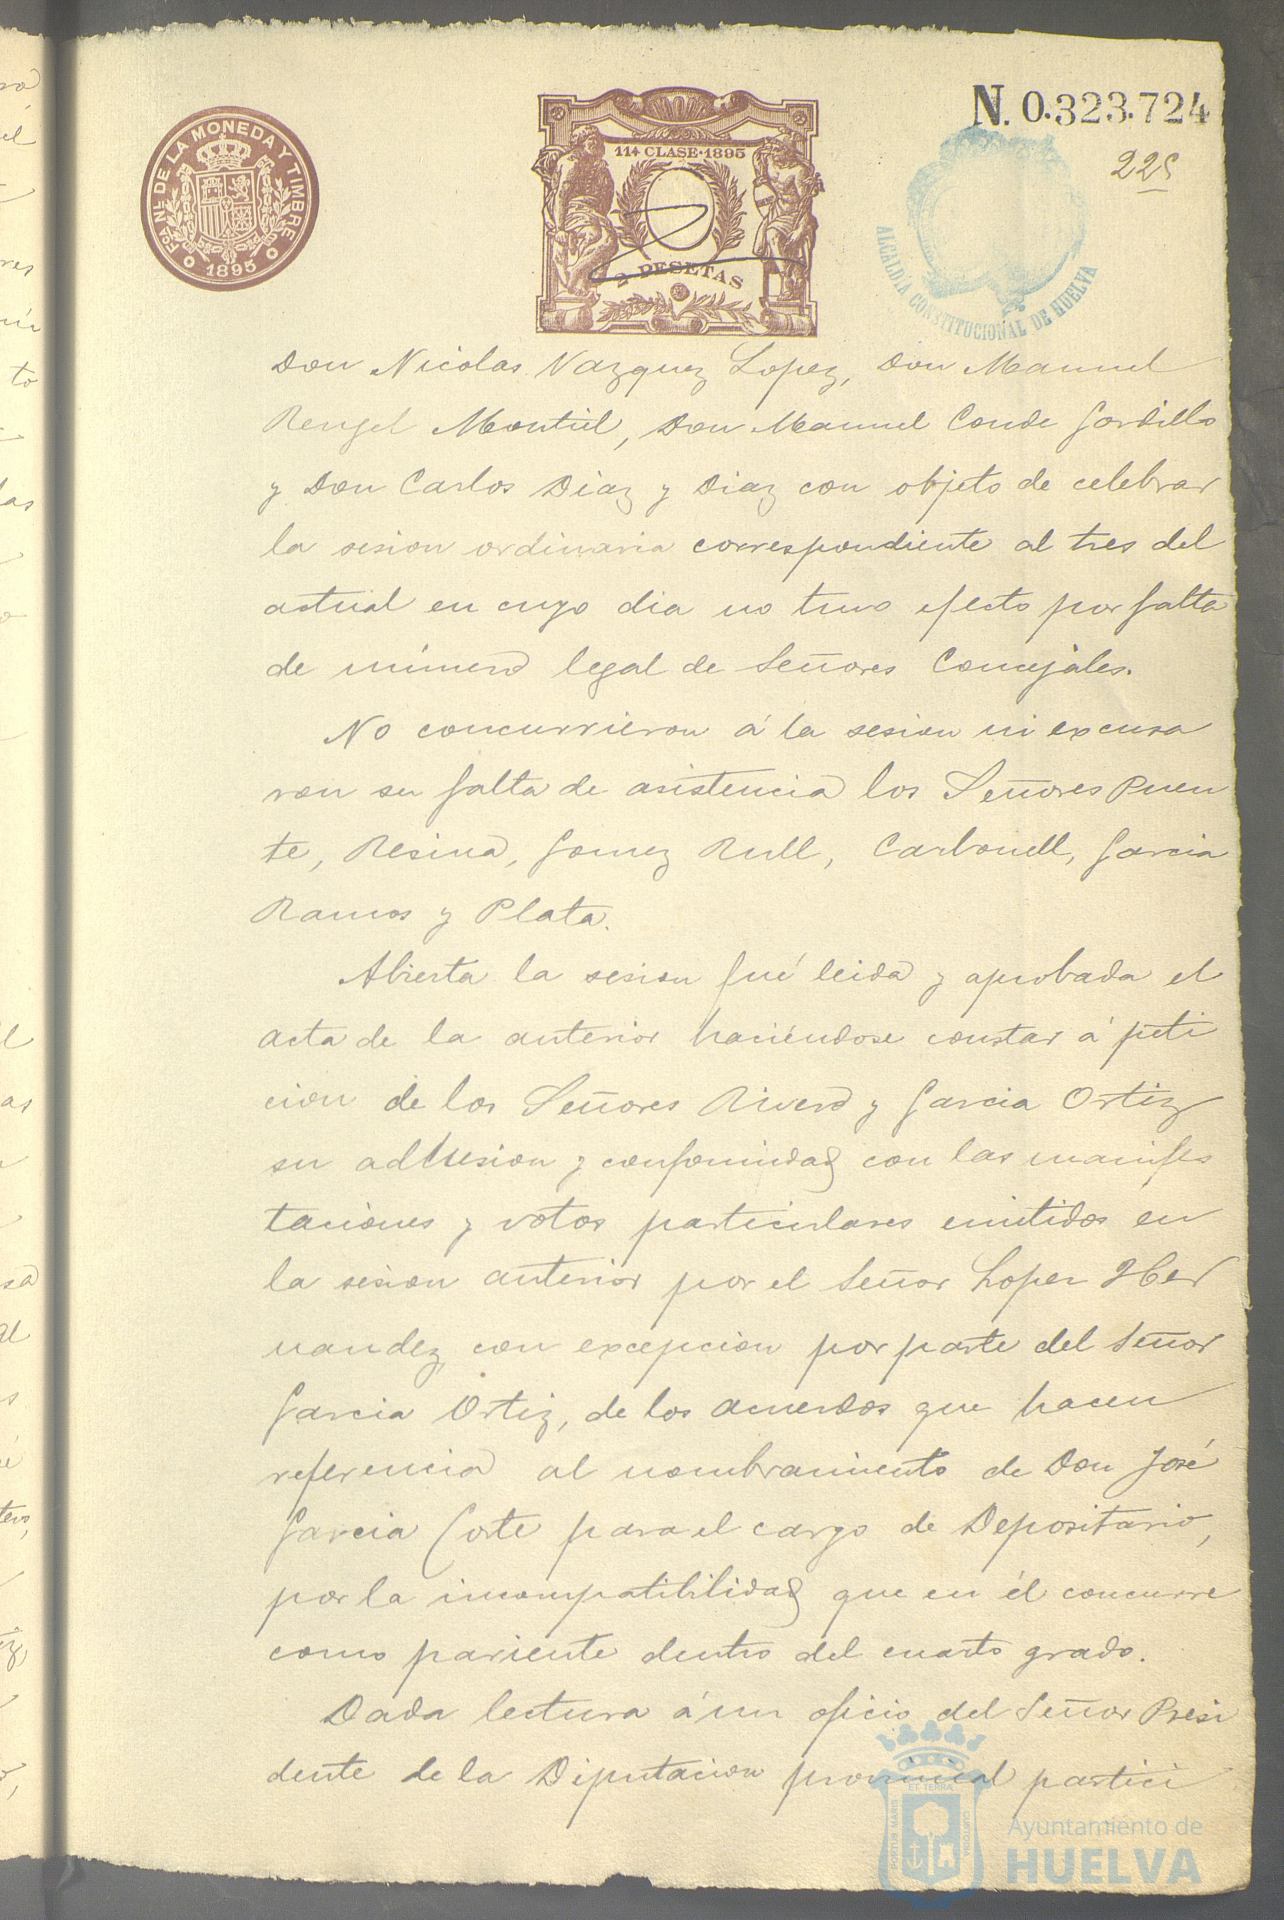 N. 0.323.724
225
FCA. NL. DE LA MONEDA Y TIMBRE
1895
11ª CLASE·1895
2 PESETAS
ALCALDÍA CONSTITUCIONAL DE HUELVA
Don Nicolas Vazquez Lopez, Don Manuel
Rengel Montiel, Don Manuel Conde Gordillo
y Don Carlos Diaz y Diaz con objeto de celebrar
la sesion ordinaria correspondiente al tres del
actual en cuyo dia no tuvo efecto por falta
de número legal de Señores Concejales.
No concurrieron á la sesion ni excusa
ron su falta de asistencia los Señores Puen
te, Resina, Gomez Rull, Carbonell, Garcia
Ramos y Plata.
Abierta la sesion fué leida y aprobada el
acta de la anterior haciéndose constar á peti
cion de los Señores Rivero y Garcia Ortiz
su adhesion y conformidad con las manifes
taciones y votos particulares emitidos en
la sesion anterior por el Señor Lopez Her
nandez, con excepcion por parte del Señor
Garcia Ortiz, de los acuerdos que hacen
referencia al nombramiento de Don José
Garcia Corte para el cargo de Depositario,
por la incompatibilidad que en él concurre
como pariente dentro del cuarto grado.
Dada lectura á un oficio del Señor Presi
dente de la Diputacion provincial partici
PORTUS MARIS ET TERRA CUSTODIA
Ayuntamiento de
HUELVA